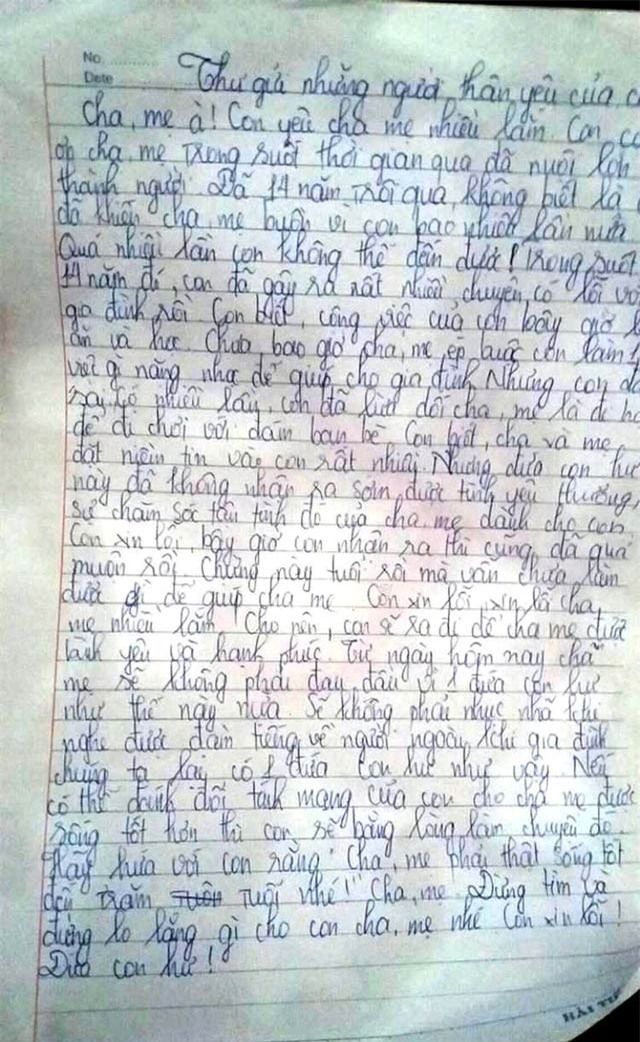 No
Date
Thư gửi những người thân yêu của c
Cha, mẹ à! Con yêu cha mẹ nhiều lắm. Con cả
ơn cha, mẹ trong suốt thời gian qua đã nuôi lớn
thành người. Đã 14 năm trôi qua, không biết là
đã khiến cha, mẹ buồn vì con bao nhiêu lần nữa
Quá nhiều lần con không thể đếm được! Trong suốt
14 năm đó, con đã gây ra rất nhiều chuyện có lỗi vớ
gia đình rồi. Con biết, công việc của con bây giờ
ăn và học. Chưa bao giờ cha, mẹ ép buộc con làm
việc gì nặng nhọc để giúp cho gia đình. Nhưng con
này có nhiều lần, con đã lừa dối cha, mẹ là đi họ
để đi chơi với đám bạn bè. Con biết, cha và mẹ
đặt niềm tin vào con rất nhiều. Nhưng đứa con hư
này đã không nhận ra sớm được tình yêu thương
sự chăm sóc tận tình đó của cha, mẹ dành cho con
Con xin lỗi, bây giờ con nhận ra thì cũng đã quá
muộn rồi. Chừng này tuổi rồi mà vẫn chưa làm
được gì để giúp cha mẹ. Con xin lỗi, xin lỗi cha,
mẹ nhiều lắm. Cho nên, con sẽ ra đi để cha mẹ được
bình yên và hạnh phúc. Từ ngày hôm nay cha
mẹ sẽ không phải đau đầu vì 1 đứa con hư
như thế này nữa. Sẽ không phải nhục nhã khi
nghe được đàm tiếng về người ngoài khi gia đình
chúng ta lại có 1 đứa con hư như vậy. Nếu
có thể đánh đổi tính mạng của con cho cha mẹ được
sống tốt hơn thì con sẽ bằng lòng làm chuyện đó.
Hãy hứa với con rằng "Cha, mẹ phải thật sống tốt
đến trăm tuổi nhé!" Cha, mẹ. Đừng tìm và
đừng lo lắng gì cho con cha, mẹ nhé. Con xin lỗi!
Đứa con hư!